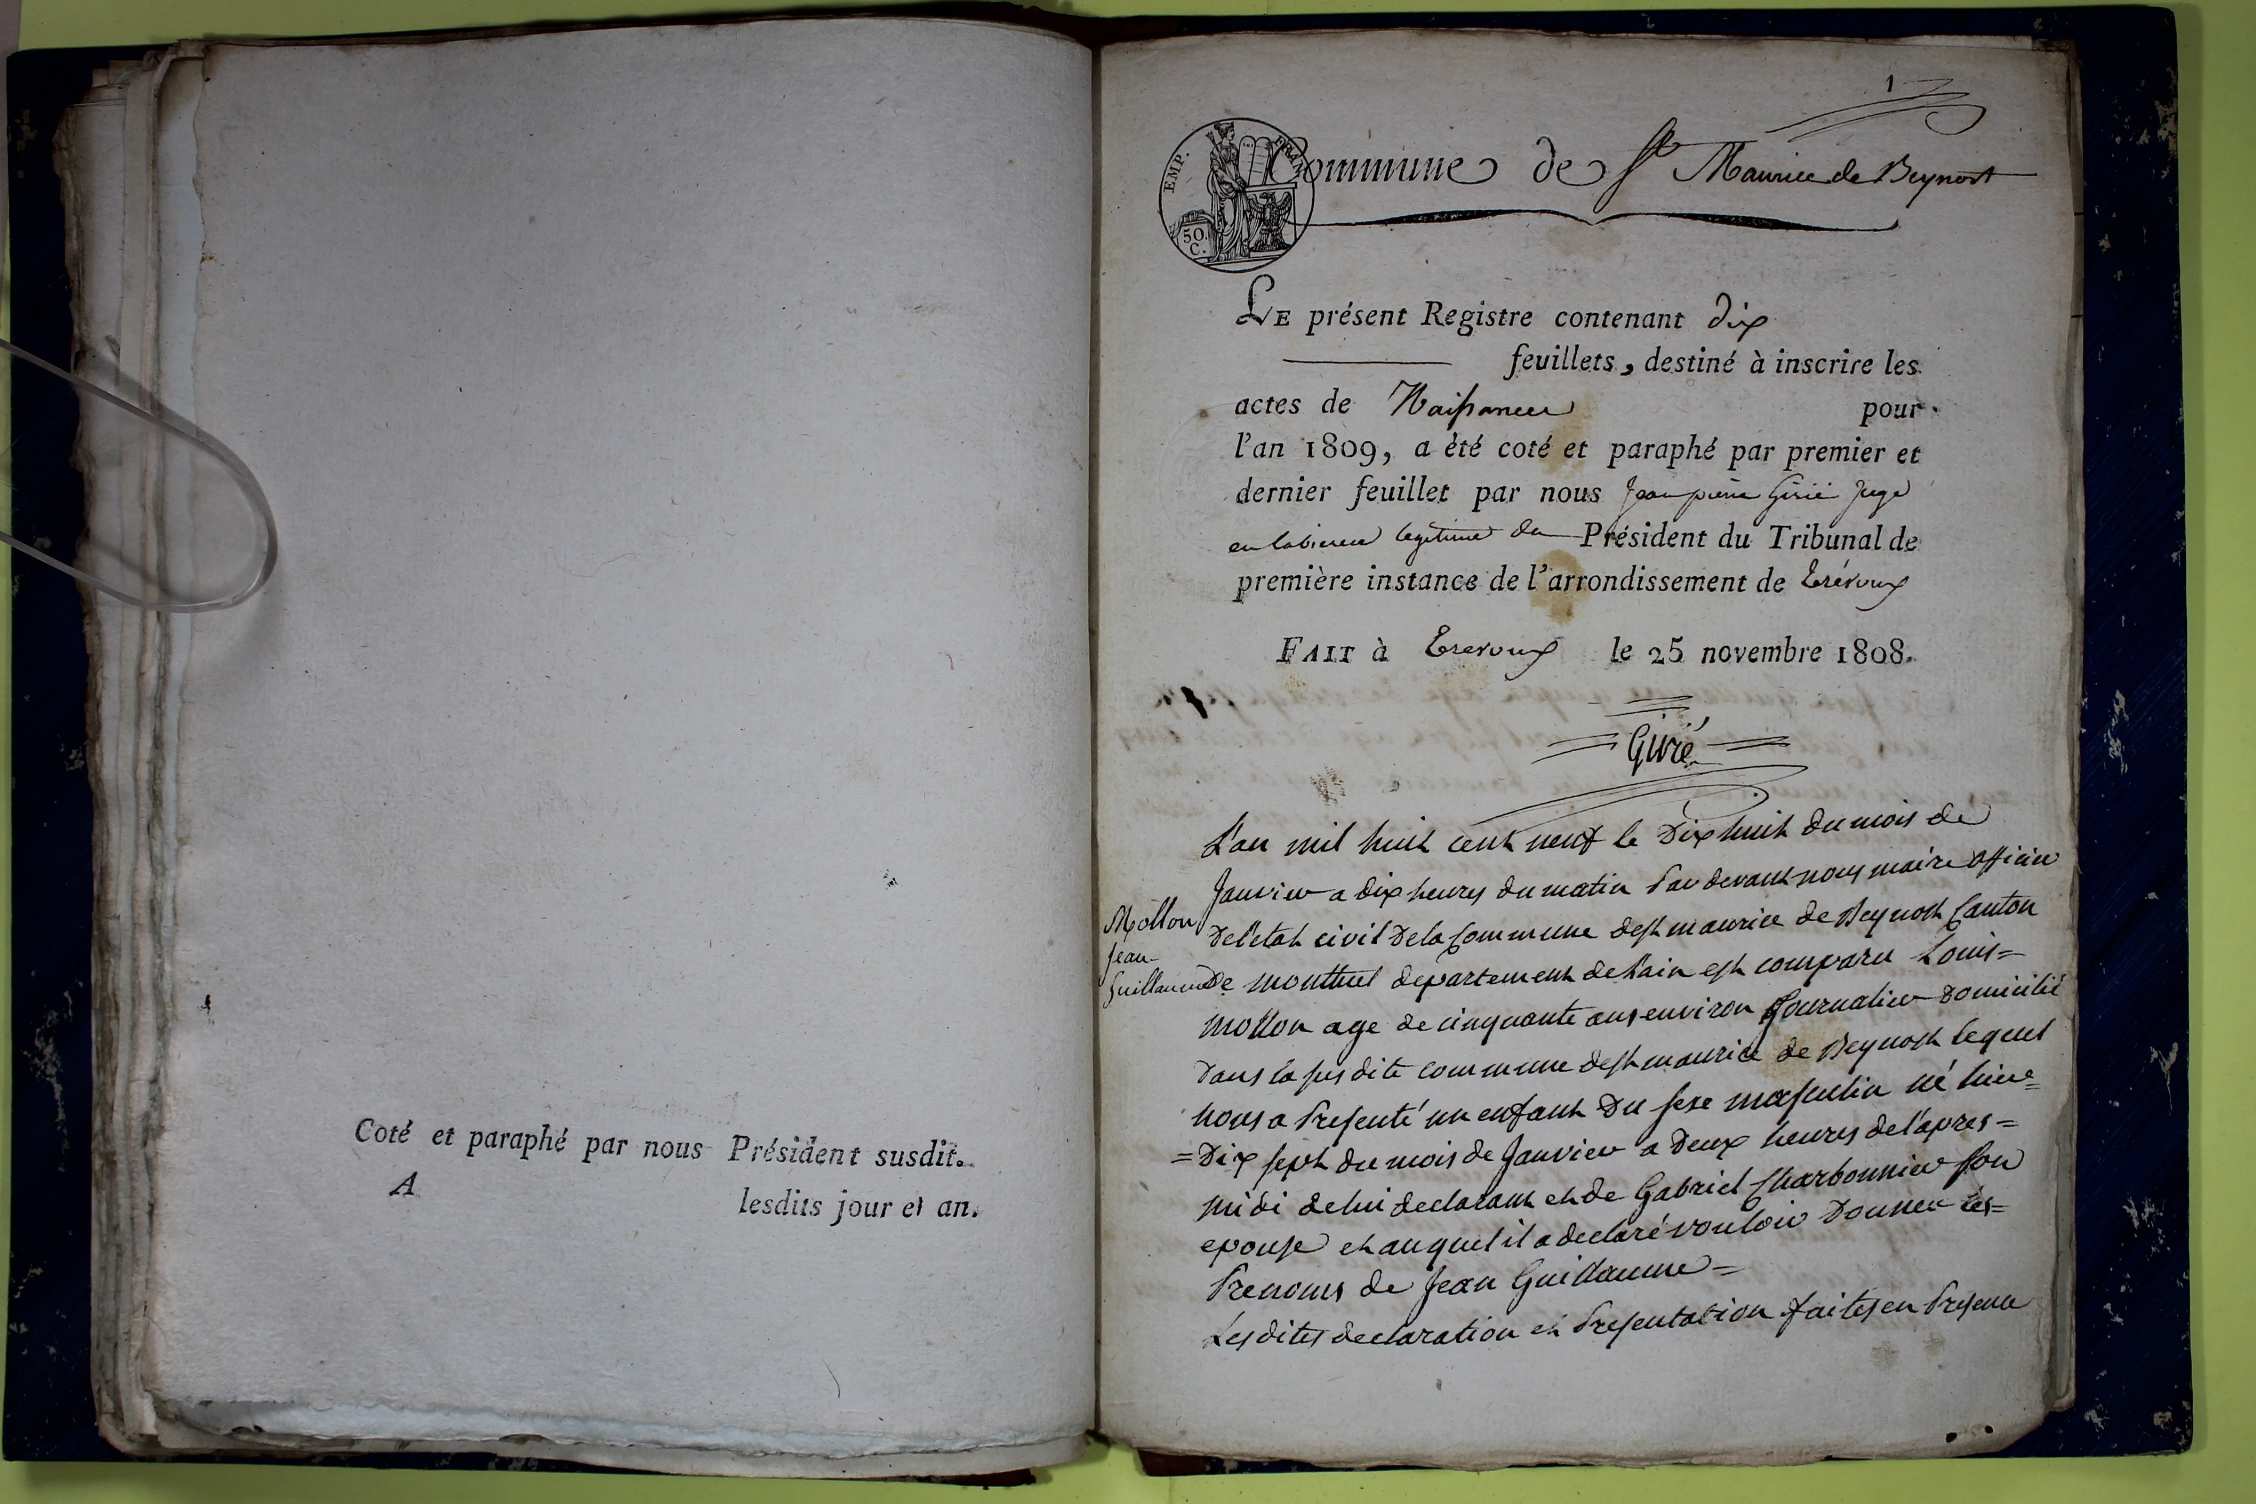 Coté et paraphé par nous Président susdit.
A lesdits jour et an.
1
EMP. FRAN
50.
C.
Commune de St Maurice de Beynost
LE présent Registre contenant dix
feuillets, destiné à inscrire les
actes de Naissances pour
l'an 1809, a été coté et paraphé par premier et
dernier feuillet par nous Jean pierre Girié Juge
en labsence legitime du Président du Tribunal de
première instance de l'arrondissement de Trévoux
FAIT à Trevoux le 25 novembre 1808.
Girié
L'an mil huit cent neuf le Dix huit du mois de
Janvier a dix heures du matin Par devant nous maire officier
Mollon
Jean
Guillaume
De l'etat civil De la Commune de st maurice de Beynost Canton
De montluel departement de l'ain est comparu Louis=
mollon age de cinquante ans environ Journalier Domicilié
Dans la sus dite commune de st maurice de Beynost lequel
nous a Presenté un enfant Du sexe masculin né hier=
=Dix sept du mois de Janvier a Deux heures de l'apres=
midi de lui declarant et de Gabriel Charbonnier son
epouse et auquel il a declaré vouloir Donner les=
Prenoms de Jean Guillaume=
Les dites declaration et Presentation faites en Presence